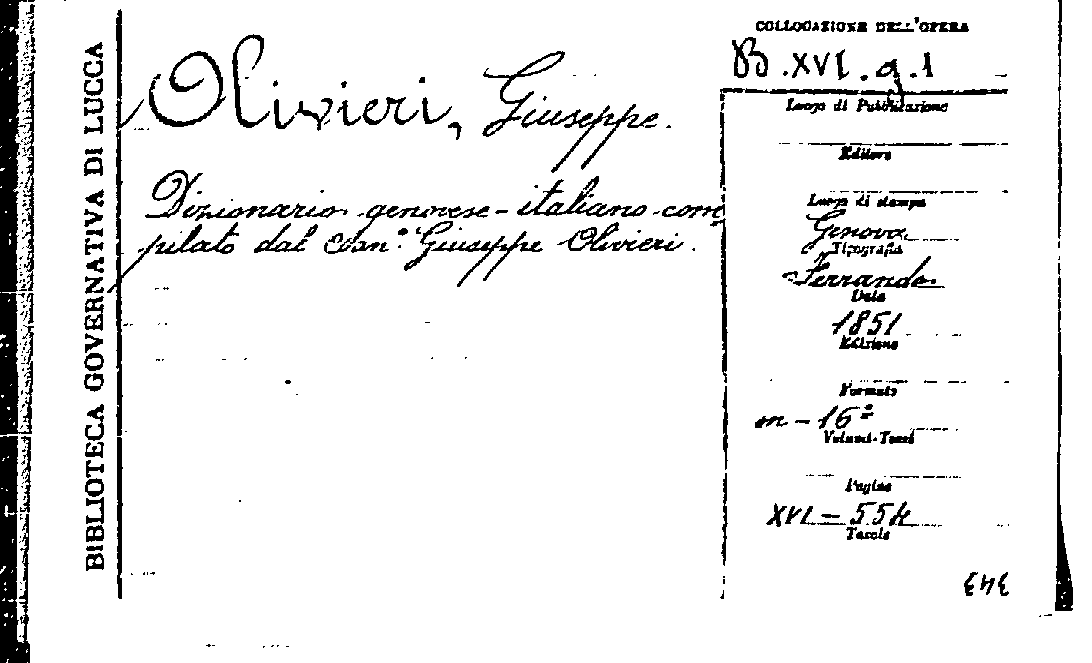 BIBLIOTECA GOVERNATIVA DI LUCCA
Olivieri, Giuseppe.
Dizionario genovese-italiano com
pilato dal Can.º Giuseppe Olivieri.
COLLOCAZIONE DELL'OPERA
B.XVI.g.1
Luogo di Pubblicazione
Editore
Luogo di stampa
Genova
Tipografia
Ferrando
Data
1851
Edizione
Formato
in-16º
Volumi-Tomi
Pagine
XVI-554
Tavole